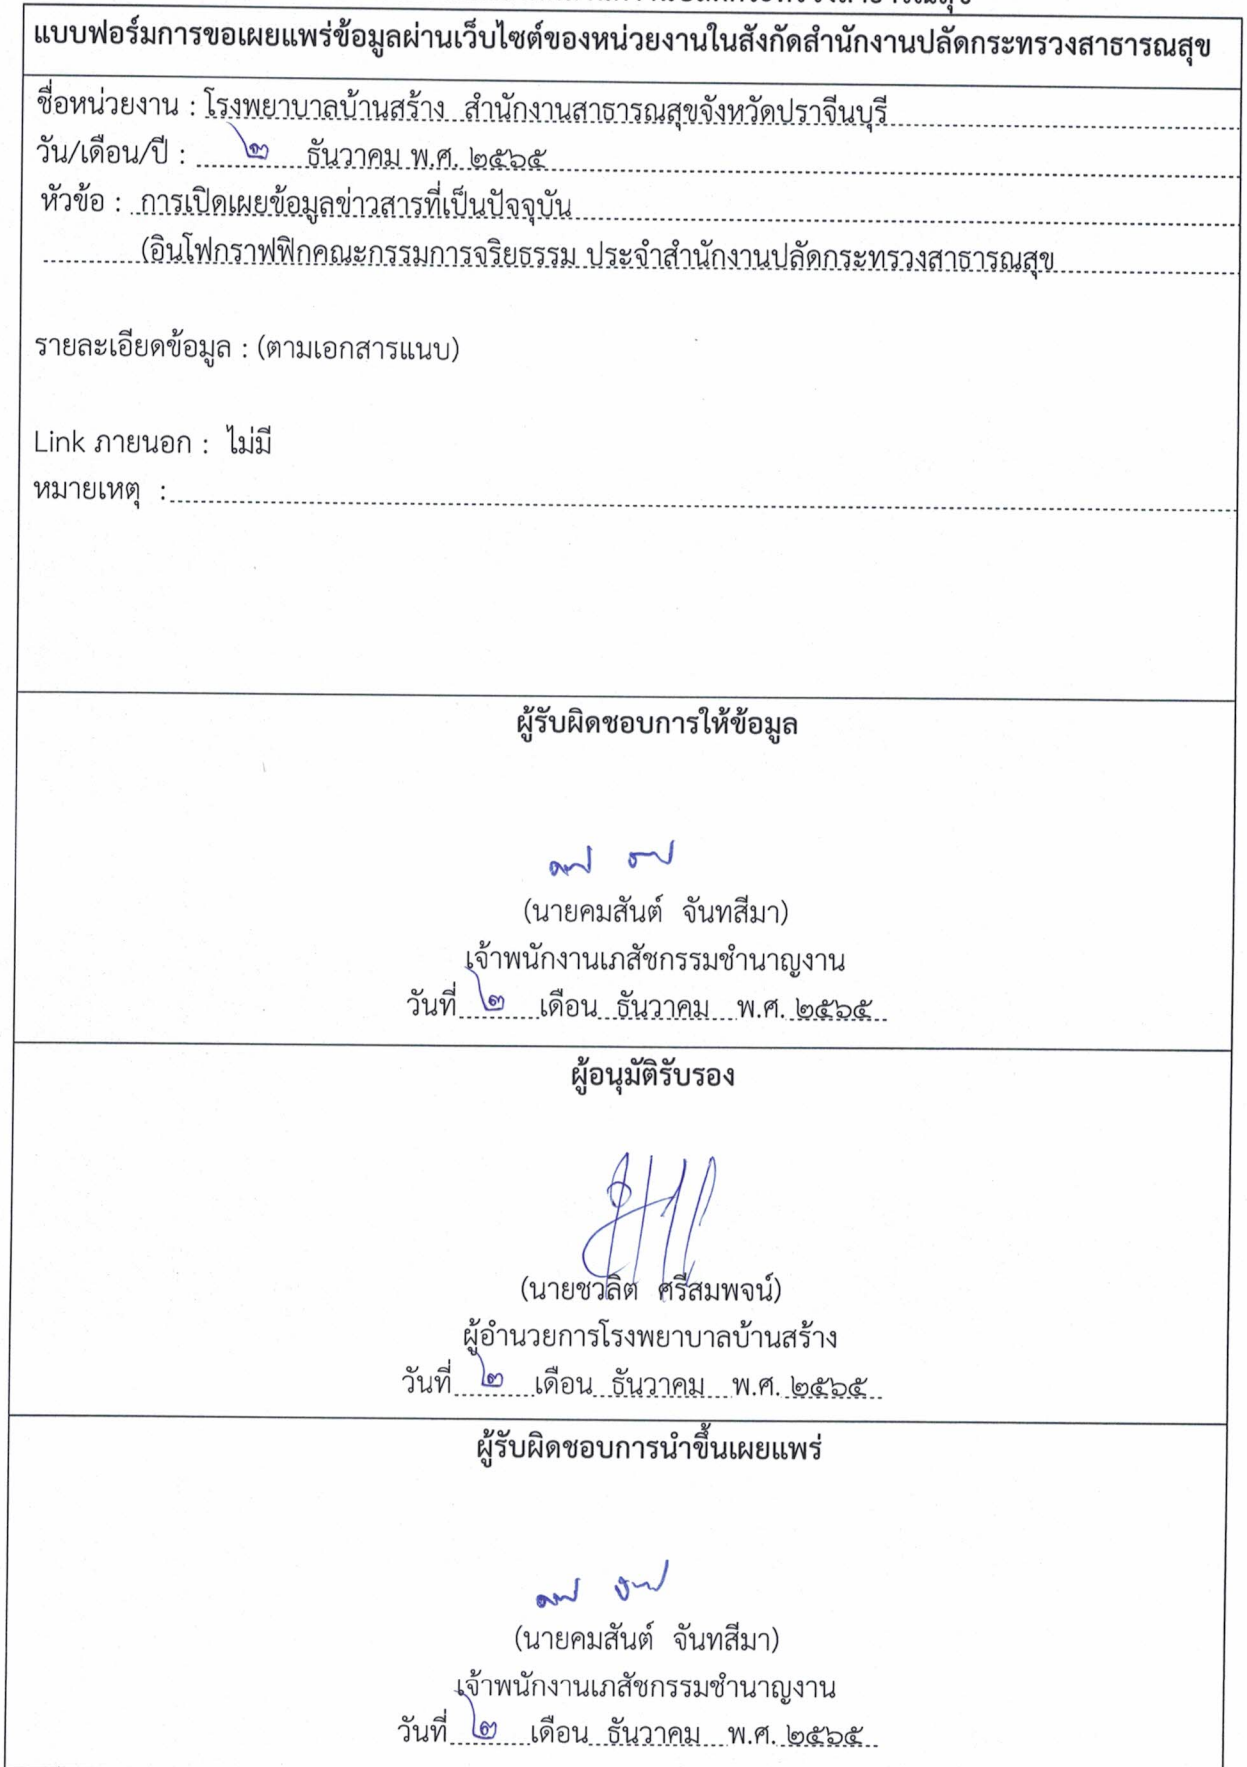 แบบฟอร์มการขอเผยแพร่ข้อมูลผ่านเว็บไซต์ของหน่วยงานในสังกัดสำนักงานปลัดกระทรวงสาธารณสุข
ชื่อหน่วยงาน : โรงพยาบาลบ้านสร้าง สำนักงานสาธารณสุขจังหวัดปราจีนบุรี
วัน/เดือน/ปี : ๒ ธันวาคม พ.ศ. ๒๕๖๕
หัวข้อ : การเปิดเผยข้อมูลข่าวสารที่เป็นปัจจุบัน
(อินโฟกราฟฟิกคณะกรรมการจริยธรรม ประจำสำนักงานปลัดกระทรวงสาธารณสุข
รายละเอียดข้อมูล : (ตามเอกสารแนบ)
Link ภายนอก : ไม่มี
หมายเหตุ :
ผู้รับผิดชอบการให้ข้อมูล
(นายคมสันต์ จันทสีมา)
เจ้าพนักงานเภสัชกรรมชำนาญงาน
วันที่ ๒ เดือน ธันวาคม พ.ศ. ๒๕๖๕
ผู้อนุมัติรับรอง
(นายชวลิต ศรีสมพจน์)
ผู้อำนวยการโรงพยาบาลบ้านสร้าง
วันที่ ๒ เดือน ธันวาคม พ.ศ. ๒๕๖๕
ผู้รับผิดชอบการนำขึ้นเผยแพร่
(นายคมสันต์ จันทสีมา)
เจ้าพนักงานเภสัชกรรมชำนาญงาน
วันที่ ๒ เดือน ธันวาคม พ.ศ. ๒๕๖๕